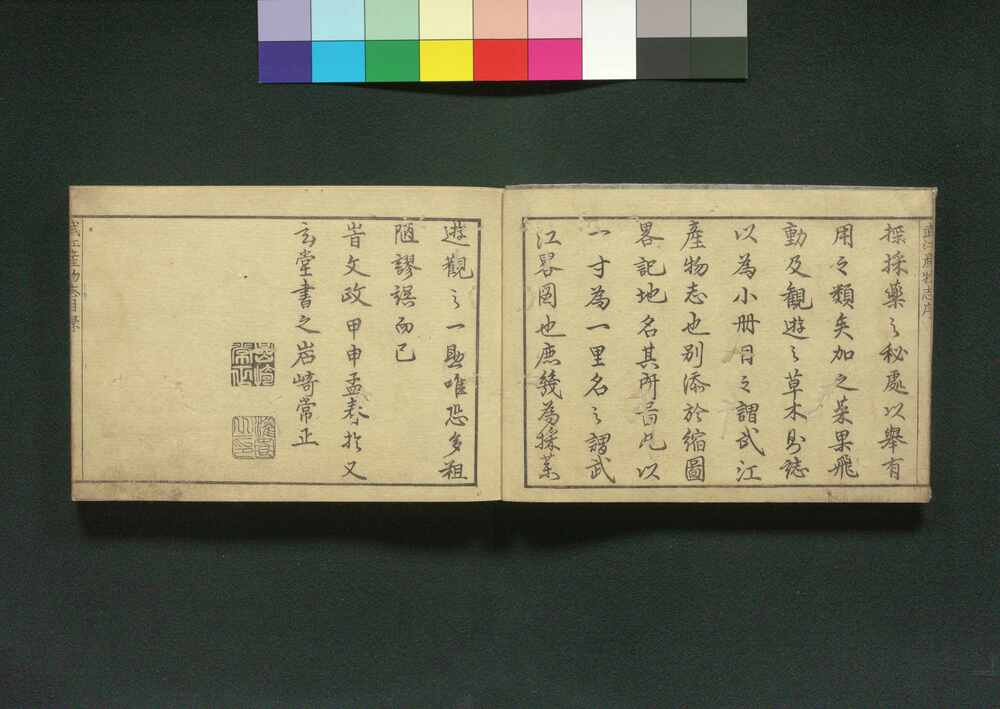 武江産物志序
採採藥之秘處以舉有
用之類矣加之菜果飛
動及観遊之草木別誌
以為小冊目之謂武江
產物志也別添於縮圖
畧記地名其所旨凢以
一寸為一里名之謂武
江畧図也庶幾為採藥
遊觀之一助唯恐多粗
陋謬誤而已
旹文政甲申孟春於又
玄堂書之岩崎常正
岩崎常正
武江產物志目录